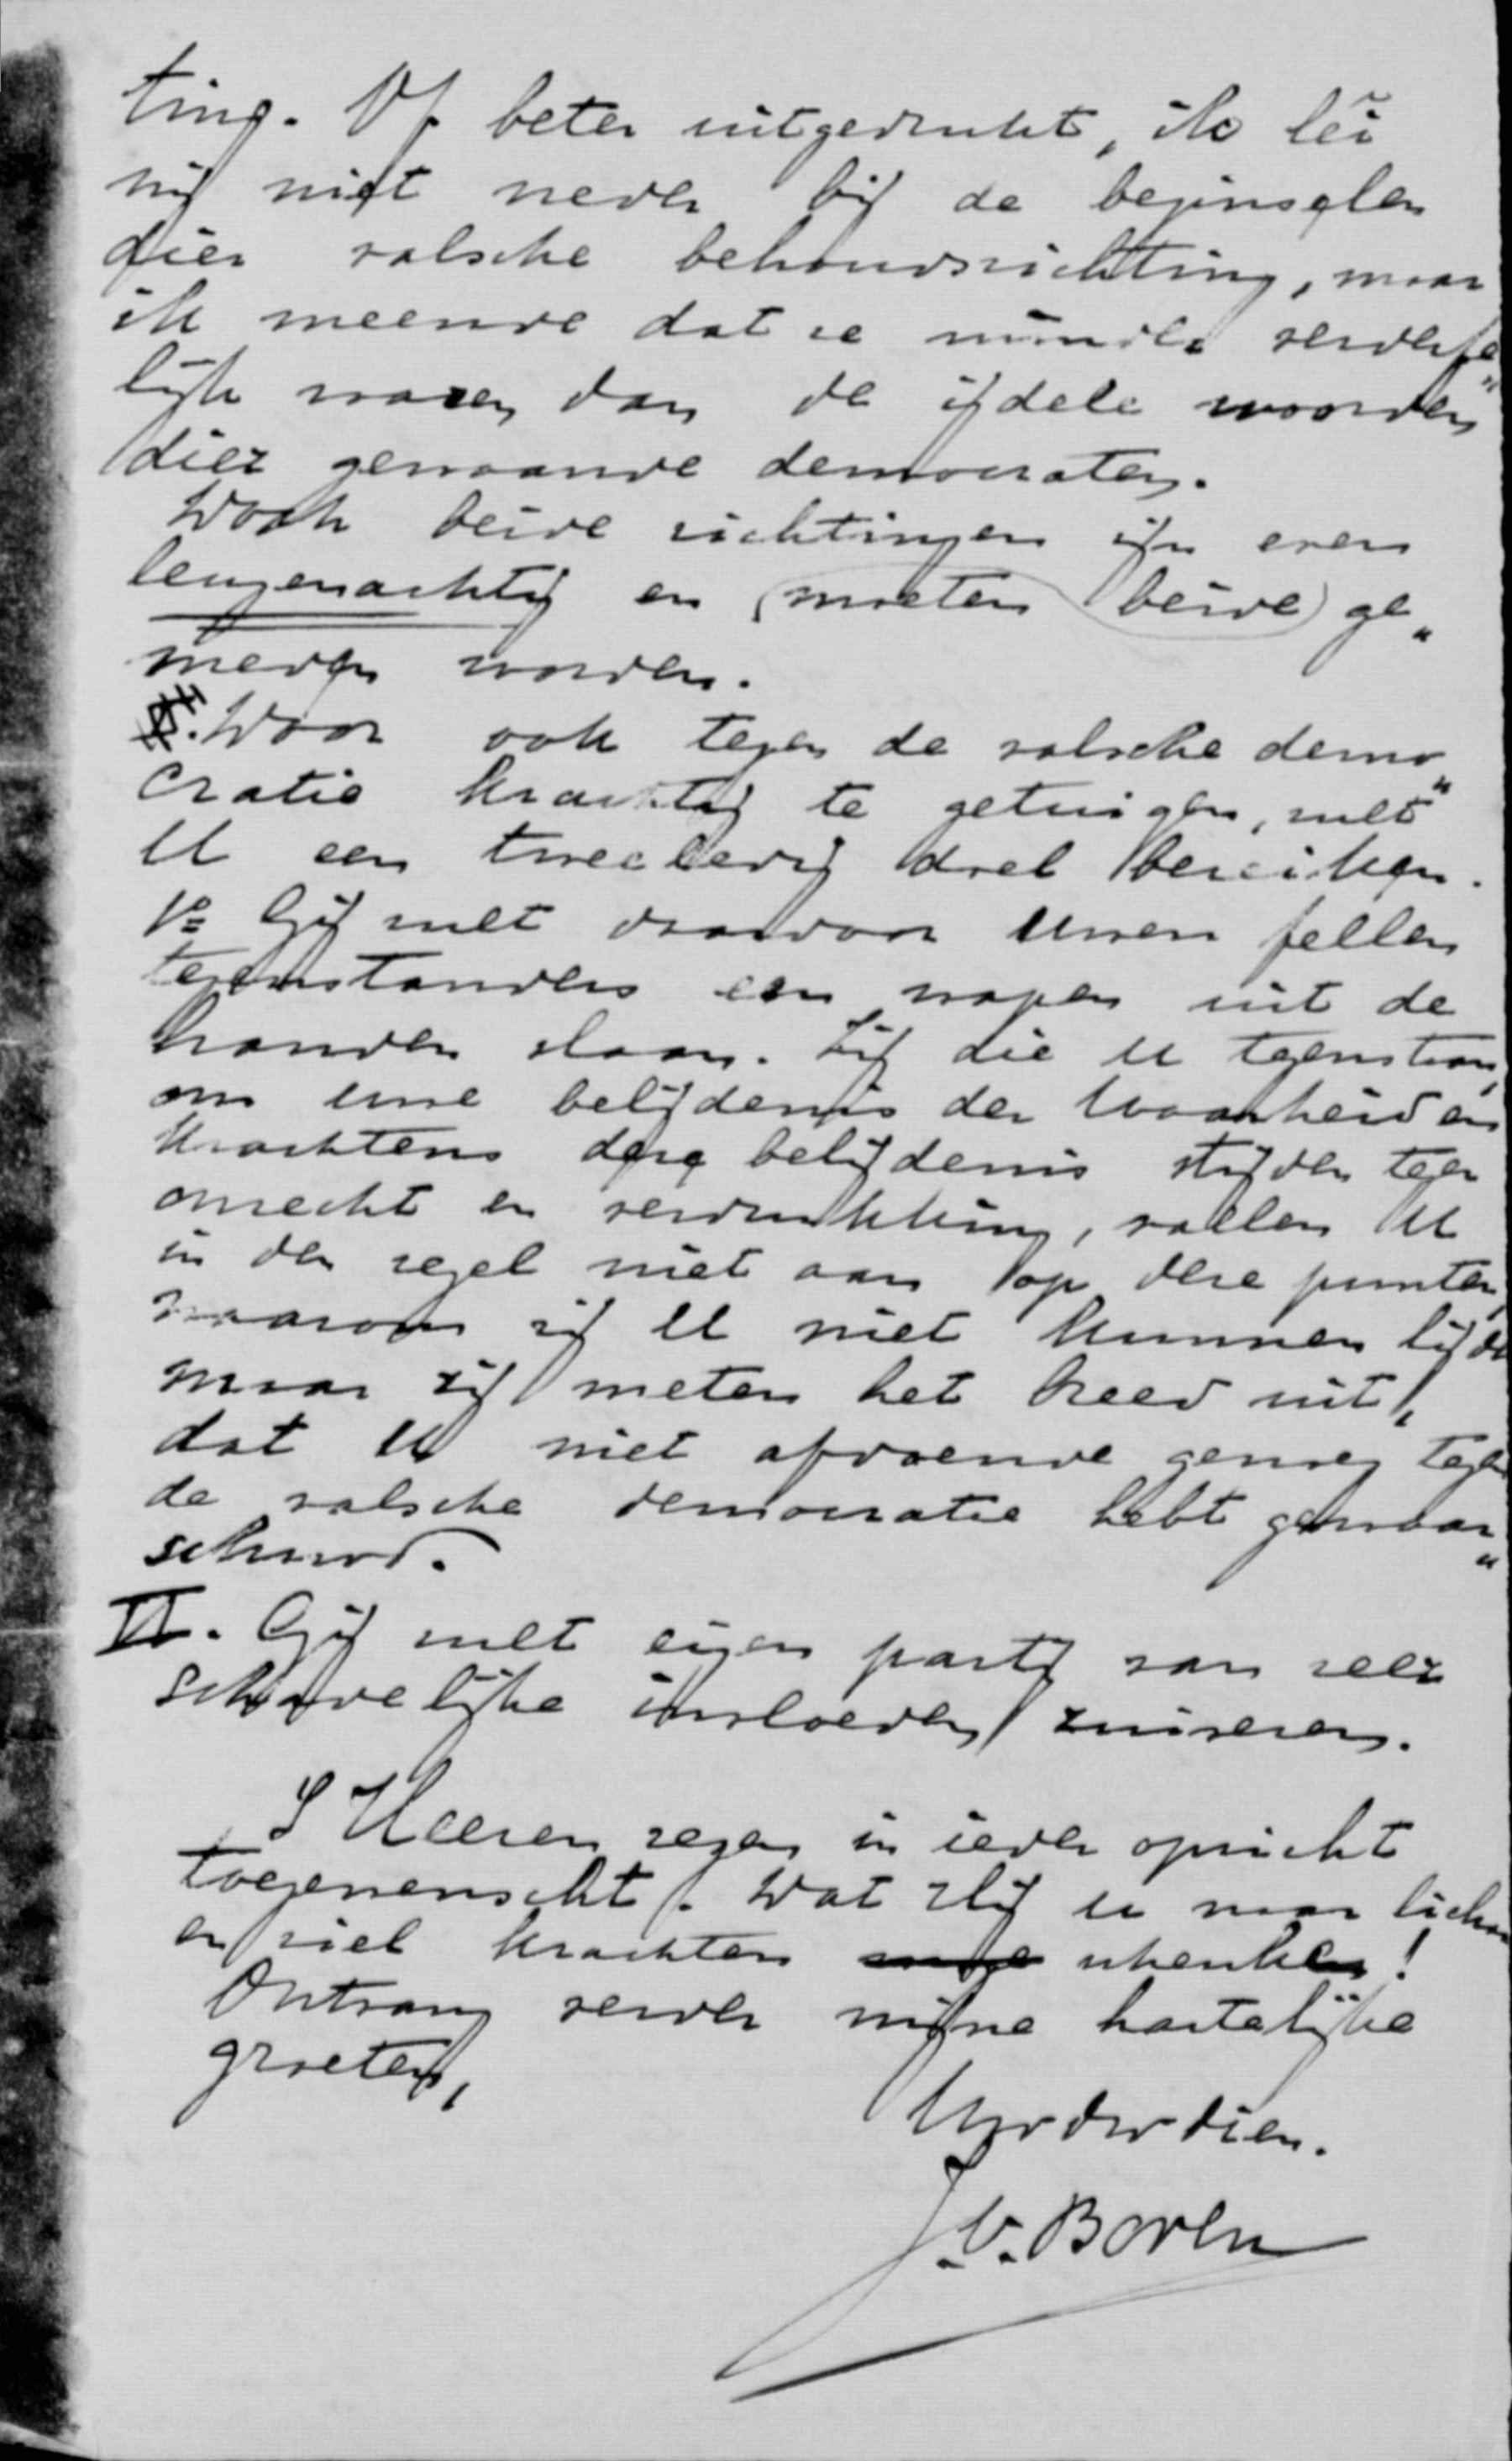 ting. Of beter uitgedrukt, ik lei
mij niet neder bij de beginselen
dier valsche behoudsrichting, maar
ik meende dat ze minder verderfe„
lijk waren dan de ijdele woorden
dier gewaande democraten.
Doch beide richtingen zijn even
leugenachtig en (moeten beide) ge„
meden worden.
Door ook tegen de valsche demo„
cratie krachtig te getuigen, zult
U een tweeledig doel bereiken.
1º Gij zult daardoor Uwen fellen
tegenstanders een wapen uit de
handen slaan. Zij die U tegenstaan,
om uwe belijdenis der Waarheid en
krachtens deze belijdenis strijden tegen
onrecht en verdrukking, vallen U
in den regel niet aan op deze punten,
waarom zij U niet kunnen lijden
maar zij meten het breed uit,
dat U niet afdoende genoeg tegen
de valsche democratie hebt gewaar„
schuwd.
II. Gij zult eigen partij van zeer
schadelijke invloeden zuiveren.
S Heeren zegen in ieder opzicht
toegewenscht. Dat Hij U naar lichaam
en ziel krachten schenken!
Ontvang verder mijne hartelijke
groeten,
Uw dw dien.
J. V. Boven